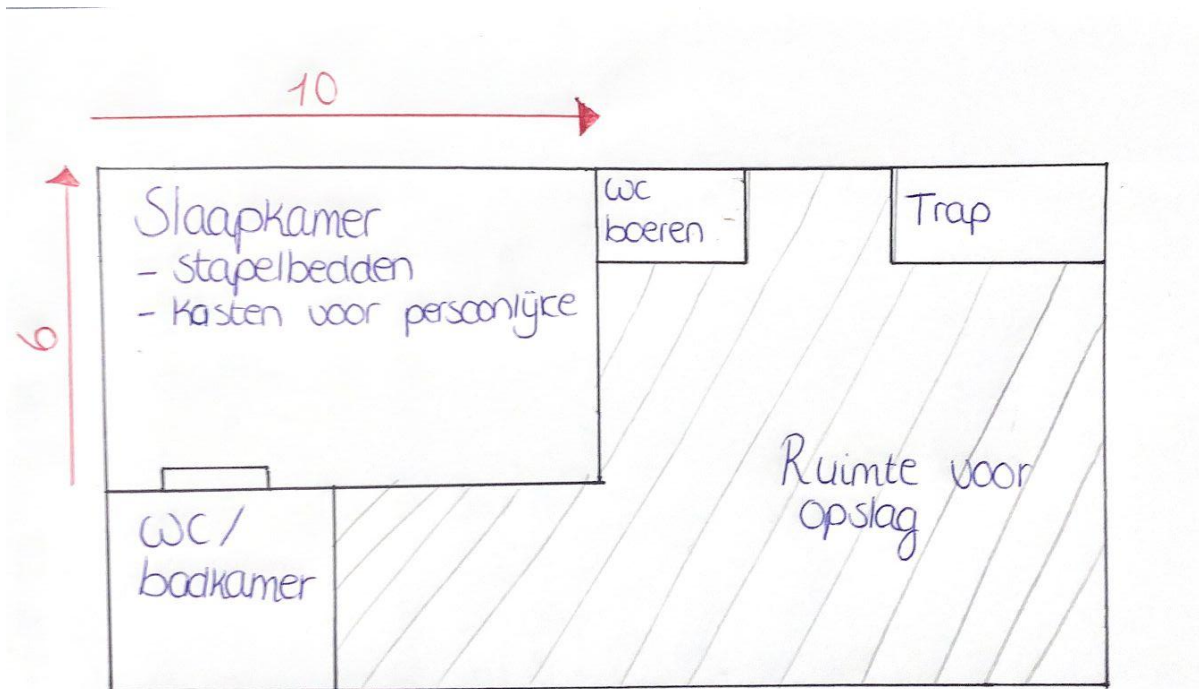 10
6
Slaapkamer
- stapelbedden
- Kasten voor persoonlijke
WC
boeren
Trap
Ruimte voor
opslag
WC/
badkamer